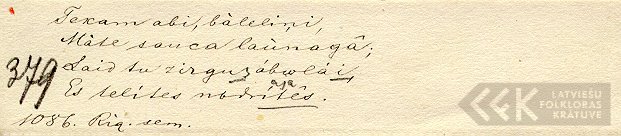 Tekam abi, bāleliņi,
Māte sauca launagâ;
379
Laid tu zirgu zâbolâi,
Es telites nodritês.
aja
1086. Rig. sem.
LATVIEŠU
FOLKLORAS
KRĀTUVE